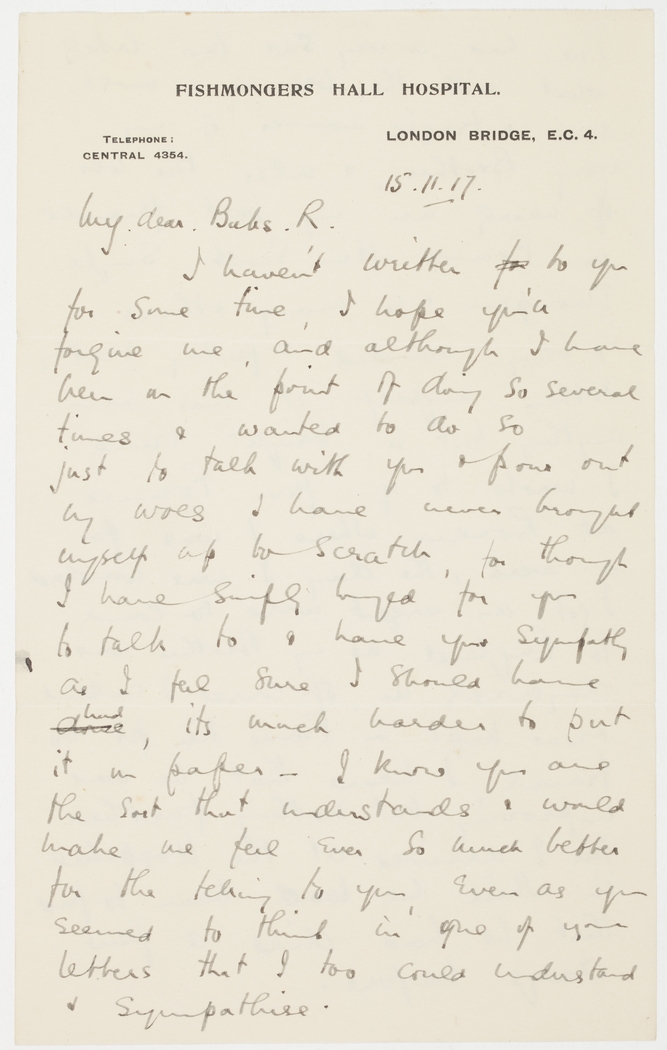 FISHMONGERS HALL HOSPITAL.
TELEPHONE:
CENTRAL 4354.
LONDON BRIDGE, E.C. 4.
15.11.17.
My dear Bubs. R.
I haven't written for to you
for some time I hope you'll
forgive me, and although I have
been on the point of doing so several
times & wanted to do so
just to talk with you & pour out
my woes I have never brought
myself up to scratch, for though
I have simply longed for you
to talk to & have your sympathy
as I feel sure I should have
done had, its much harder to put
it on paper - I know you are
the sort that understands & would
make me feel ever so much better
for the telling to you, even as you
seemed to think in one of your
letters that I too could understand
& sympathise.